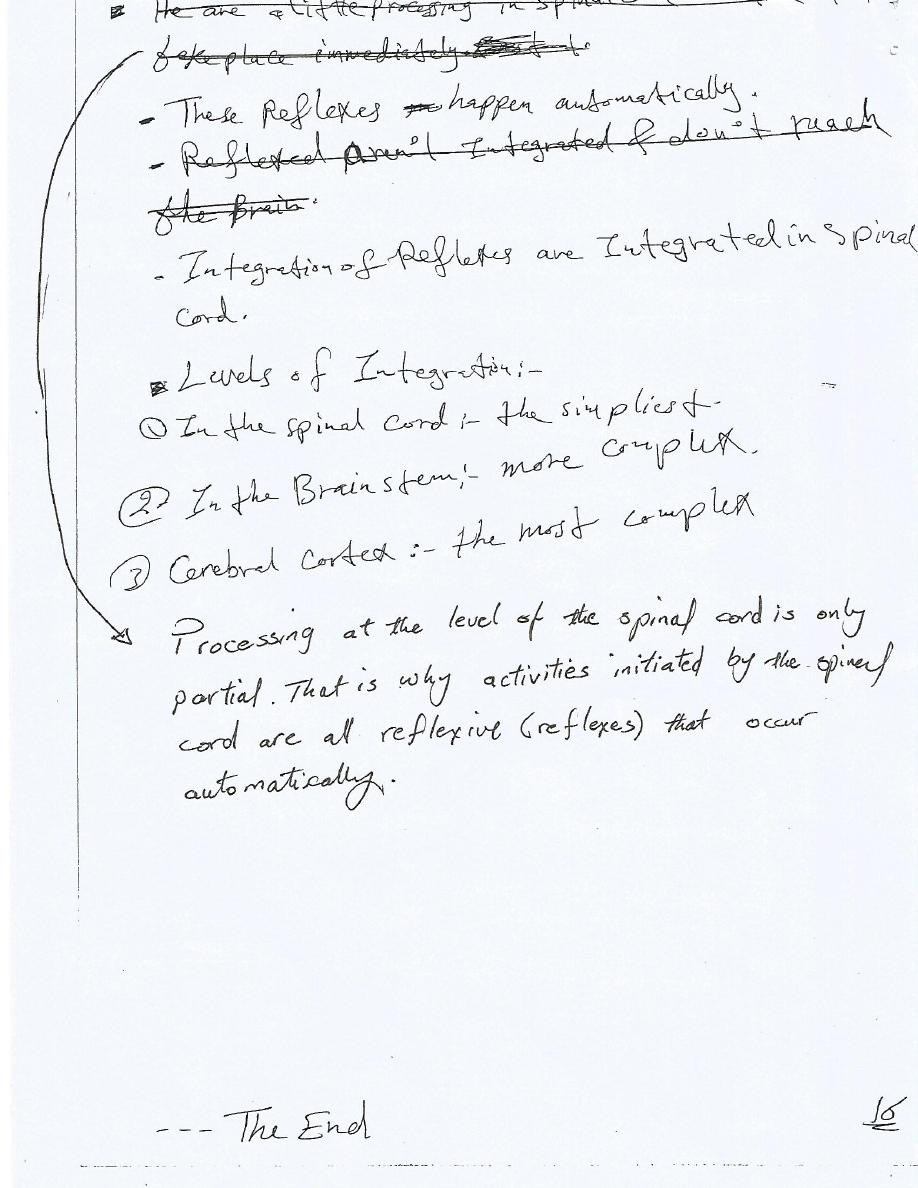 He are a little processing in spinal
take place immediately
- These Reflexes happen automatically.
- Reflexed Aren't Integrated & don't reach
the Brain.
- Integration of Reflexes are Integrated in Spinal
cord.
Levels of Integration:-
① In the spinal cord :- the simpliest.
② In the Brainstem:- more complex.
③ Cerebral Cortex :- the most complex
Processing at the level of the spinal cord is only
partial. That is why activities initiated by the spinal
cord are all reflexive (reflexes) that occur
automatically.
--- The End
16